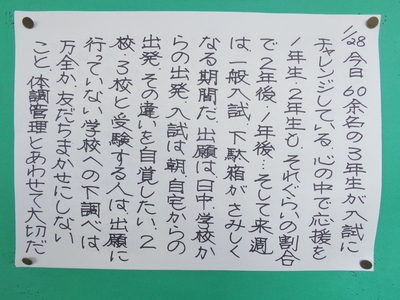 1/28 今日60余名の3年生が入試に
チャレンジしている。心の中で応援を
1年生、2年生も、それぐらいの割合
で2年後、1年後…そして来週
は一般入試、下駄箱がさみしく
なる期間だ。出願は、日中、学校か
らの出発、入試は、朝、自宅からの
出発、その違いを自覚したい。2
校、3校と受験する人は、出願に
行っていない学校への下調べは
万全か、友だちまかせにしない
こと、体調管理とあわせて大切だ